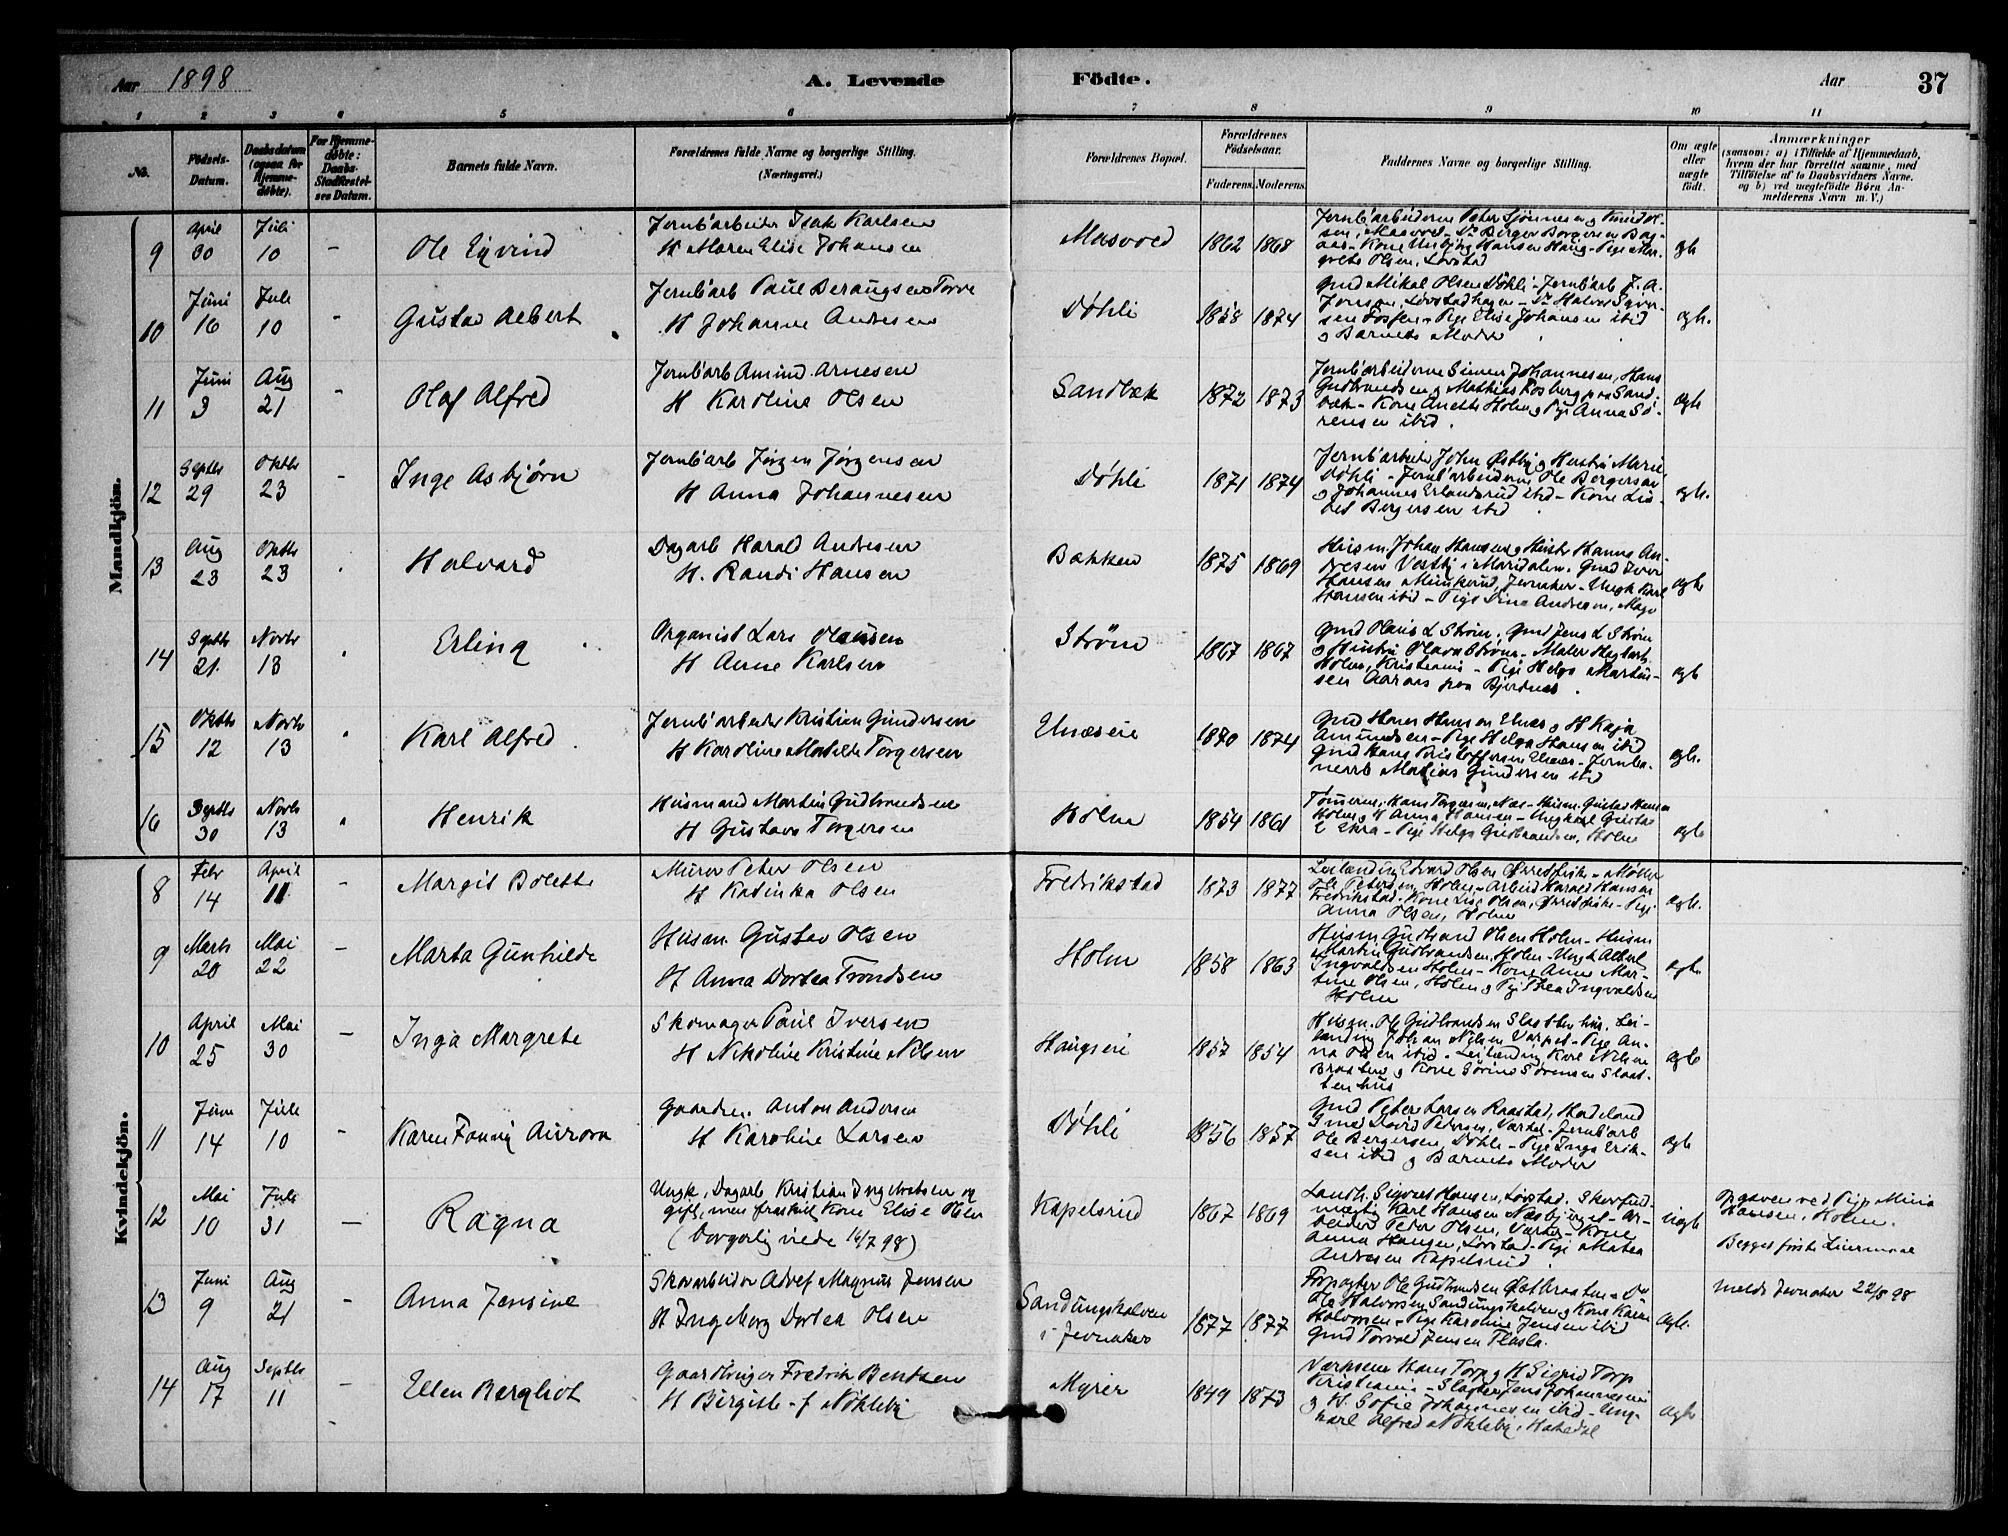 Aar 1898 A. Levende Födte. Aar 37
1 2 3 4 5 6 7 8 9 10 11
No.
Födsels-
Datum.
Daabsdatum
(ogsaa for
Hjemme-
döbte).
For Hjemme-
döbte:
Daabs-
Stadfæstel-
ses Datum.
Barnets fulde Navn.
Forældrenes fulde Navne og borgerlige Stilling.
(Næringsvei.)
Forældrenes Bopæl.
Forældrenes
Födselsaar.
Faderens. Moderens.
Faddernes Navne og borgerlige Stilling.
Om ægte
eller
uægte
födt.
Anmærkninger
(saasom: a) i Tilfælde af Hjemmedaab,
hvem der har forrettet samme, med
Tilföielse af to Daabsvidners Navne,
og b) ved uægtefödte Børn An-
melderens Navn m. V.)
Mandkjön.
9 April 30 Juli 10 – Ole Eivind
Jernb'arbeider Isak Karlsen
H Maren Elise Johansen
Masoved 1862 1868
Jernb'arbeiderne Peter
Olsen, Løvstad
ægte
10 Juni 16 Juli 10 – Gustav Albert
Jernb'arb Paul
H Johanne Andresen
Døhli 1858 1874
Gmd Mikal Olsen Døhli – Jernb'arb J. A.
Elise Johansen ibid
og Barnets Moder
ægte.
11 Juni 3 Aug 21 – Olaf Alfred
Jernb'arb Amund Arnesen
H Karoline Olsen
Sandbæk 1872 1873
Jernb'arbeiderne Simen Johannesen, Hans
Gudbrandsen og Mathias
Kone Anette Holm og Pige Anna Sø-
rensen ibid.
ægte
12 Septbr 29 Oktbr 23 – Inge Asbjørn
Jernb'arb Jørgen Jørgensen
H Anna Johannesen
Døhli 1871 1874
Jernb'arbeider John Østby og Hustru Marie
Døhli – Jernb'arbeiderne Ole Bergersen
og Johannes Erlandsrud ibid – Kone Lis-
bet Bergersen ibid
ægte.
13 Aug 23 Oktbr 23 Halvard
Dagarb Harald Andresen
H. Randi Hansen
Bakken 1875 1869
Husm. Johan Hansen og Hustr Hanna An-
dresen Vestby i Maridalen. Gmd Iver
Hansen Munkerud, Jevnaker – Ungk Karl
Hansen ibid – Pige Dina Andresen,
ægte
14 Septbr 21. Novbr 13 Erling
Organist Lars Olausen
H Anne Karlsen
Strøm 1867 1867
Gmd Olaus L Strøm, Gmd Jens L Strøm
og Hustru Olava Strøm – Maler
Holm, Kristiania – Pige Helga Martin-
sen Aaraas paa Bjerdnes.
ægte
15 Oktbr 12 Novbr 13 Karl Alfred
Jernb'arbeider Kristian Gundersen
H Karoline Matilde Torgersen
Elnæseie 1870 1874
Gmd Hans Hansen Elnæs og H Kaja
Amundsen – Pige Helga Hansen ibid
Gmd Hans Kristoffersen Elnæs – Jernba-
nearb Matias Gundersen ibid
ægte.
16 Septbr 30 Novbr 13 Henrik
Husmand Martin Gudbrandsen
H Gustava Torgersen
Holm 1854 1861
Tømmerm. Hans Torgersen, Næs – Husm. Gustav Hansen
Holm, og H Anna Hansen – Ungkarl Gustav
Pige Helga Gudbrandsen, Holm
ægte
Kvindekjön.
8 Febr 14 April 11 – Margit Bolette
Murer Peter Olsen
H Katinka Olsen
Fredrikstad 1873 1877
Leilænding Edvard Olsen
Ole Petersen, Holm – Arbeid Harald Hansen
Fredrikstad – Kone Lise Olsen,
Anna Olsen, Holm
ægte.
9 Marts 20 Mai 22 – Marta Gunhilde
Husm. Gustav Olsen
H Anna Dortea Trondsen
Holm 1858 1863
Husm Gudbrand Olsen Holm – Husm
Martin Gudbrandsen, Holm – Ungk Albert
Ingvaldsen Holm – Kone Anne Mar-
tine Olsen, Holm og Pige Thea Ingvaldsen
Holm
ægte
10 April 25 Mai 30 – Inga Margrete
Skomager Paul Iversen
H Nikoline Kristine Nilsen
Haugseie 1857 1854
Husm. Ole Gudbrandsen Slaattenhus, Lei-
lænding Johan Nilsen Varpet – Pige An-
na Olsen ibid. – Leilænding Karl Nilsen
Braaten og Kone Sørine Sørensen Slaat-
tenhus
ægte
11 Juni 14 Juli 10 – Karen Fanny Aurora
Gaardm. Anton Andersen
H Karoline Larsen
Døhli 1856 1857
Gmd Peter Larsen Raastad, Hadeland
Smed David Pedersen, Værket – Jernb'arb
Ole Bergersen, Døhli – Pige Inga Erik-
sen ibid og Barnets Moder
ægte
12 Mai 10 Juli 31 – Ragna
Ungk, Dagarb Kristian Ingebretsen og
gift, men fraskilt Kone Elise Olsen
(borgerlig viede 16/7 98)
Kapelsrud 1867 1869
Landh. Sigvart Hansen, Løvstad. Skovfuld-
mægtig Karl Hansen Næsbjerget – Ar-
beider Peter Olsen, Værket – Kone
Anna Hansen, Løvstad – Pige Matea
Andresen Kapelsrud
uægte
Opgaven ved Pige Mina
Hansen, Holm.
Begges første Leiermaal
13 Juni 9 Aug 21 – Anna Jensine
Skovarbeider Adolf Magnus Jensen
H Ingeborg Dortea Olsen
Sandungskalven
i Jevnaker
1877 1877
Forpagter Ole Gudbrandsen Østbraaten – Do
Ole Halvorsen Sandungskalven og Kone Karen
Halvorsen – Pige Karoline Jensen ibid
Gmd Torvald Jensen Flasla.
ægte.
Meldt Jevnaker 22/8 98
14 Aug 17 Septbr 11 – Ellen Bergliot
Gaardbruger Fredrik Bentsen
H Birgitte f Nøkleby
Myrer 1849 1873
Værkseier Hans Torp og H Sigrid Torp
Kristiania – Slagter Jens Johannesen
og H. Sofie Johannesen ibid – Ung-
karl Alfred Nøkleby, Hakedal
ægte